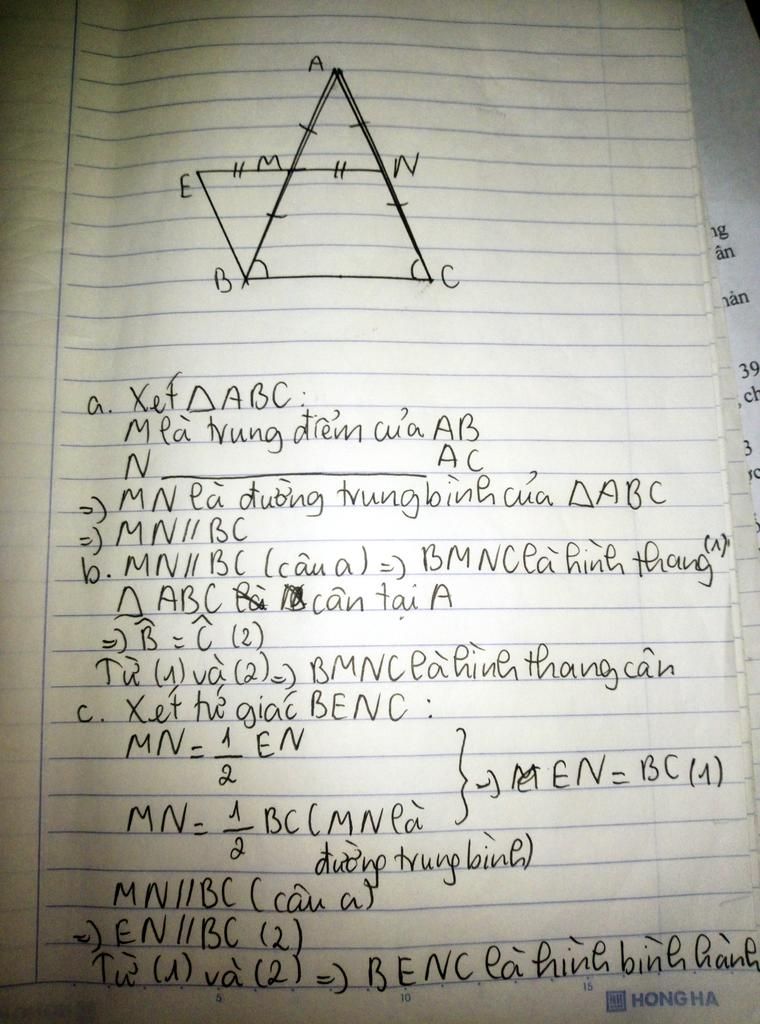 A
E M N
B C
a. Xét △ABC:
M là trung điểm của AB
N ______________ AC
=) MN là đường trung bình của △ABC
=) MN//BC
b. MN//BC (câu a) =) BMNC là hình thang (1)
△ ABC cân tại A
=) B̂ = Ĉ (2)
Từ (1) và (2) =) BMNC là hình thang cân
c. Xét tứ giác BENC:
MN = 1/2 EN
=) EN = BC (1)
MN = 1/2 BC (MN là
đường trung bình)
MN//BC (câu a)
=) EN//BC (2)
Từ (1) và (2) =) BENC là hình bình hành
5 10 15
HONG HA
ng
ân
nản
39
, ch
3